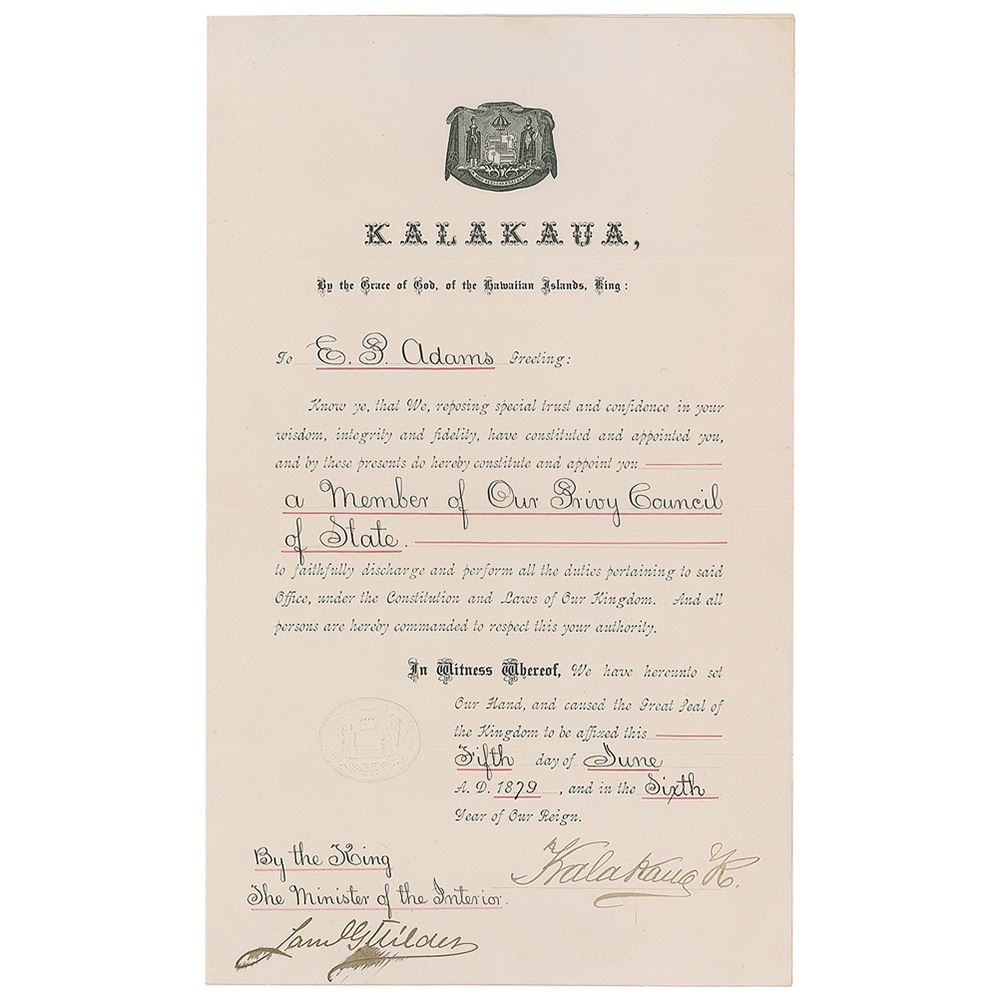 KALAKAUA,
By the Grace of God, of the Hawaiian Islands, King:
To E. P. Adams Greeting:
Know ye, that We, reposing special trust and confidence in your
wisdom, integrity and fidelity, have constituted and appointed you,
and by these presents do hereby constitute and appoint you
a Member of Our Privy Council
of State.
to faithfully discharge and perform all the duties pertaining to said
Office, under the Constitution and Laws of Our Kingdom. And all
persons are hereby commanded to respect this your authority.
In Witness Whereof, We have hereunto set
Our Hand, and caused the Great Seal of
the Kingdom to be affixed this
Fifth day of June
A. D. 1879, and in the Sixth
Year of Our Reign.
By the King
Kalakaua R.
The Minister of the Interior.
Saml G Wilder